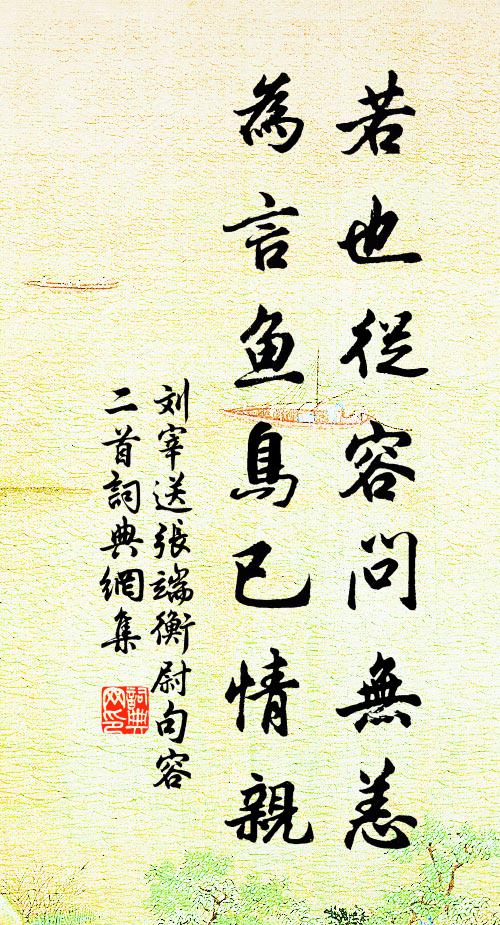 若也從容問無恙
為言魚鳥已情親
刘宰送張端衡尉句容
二首詞典網集
詞典网印